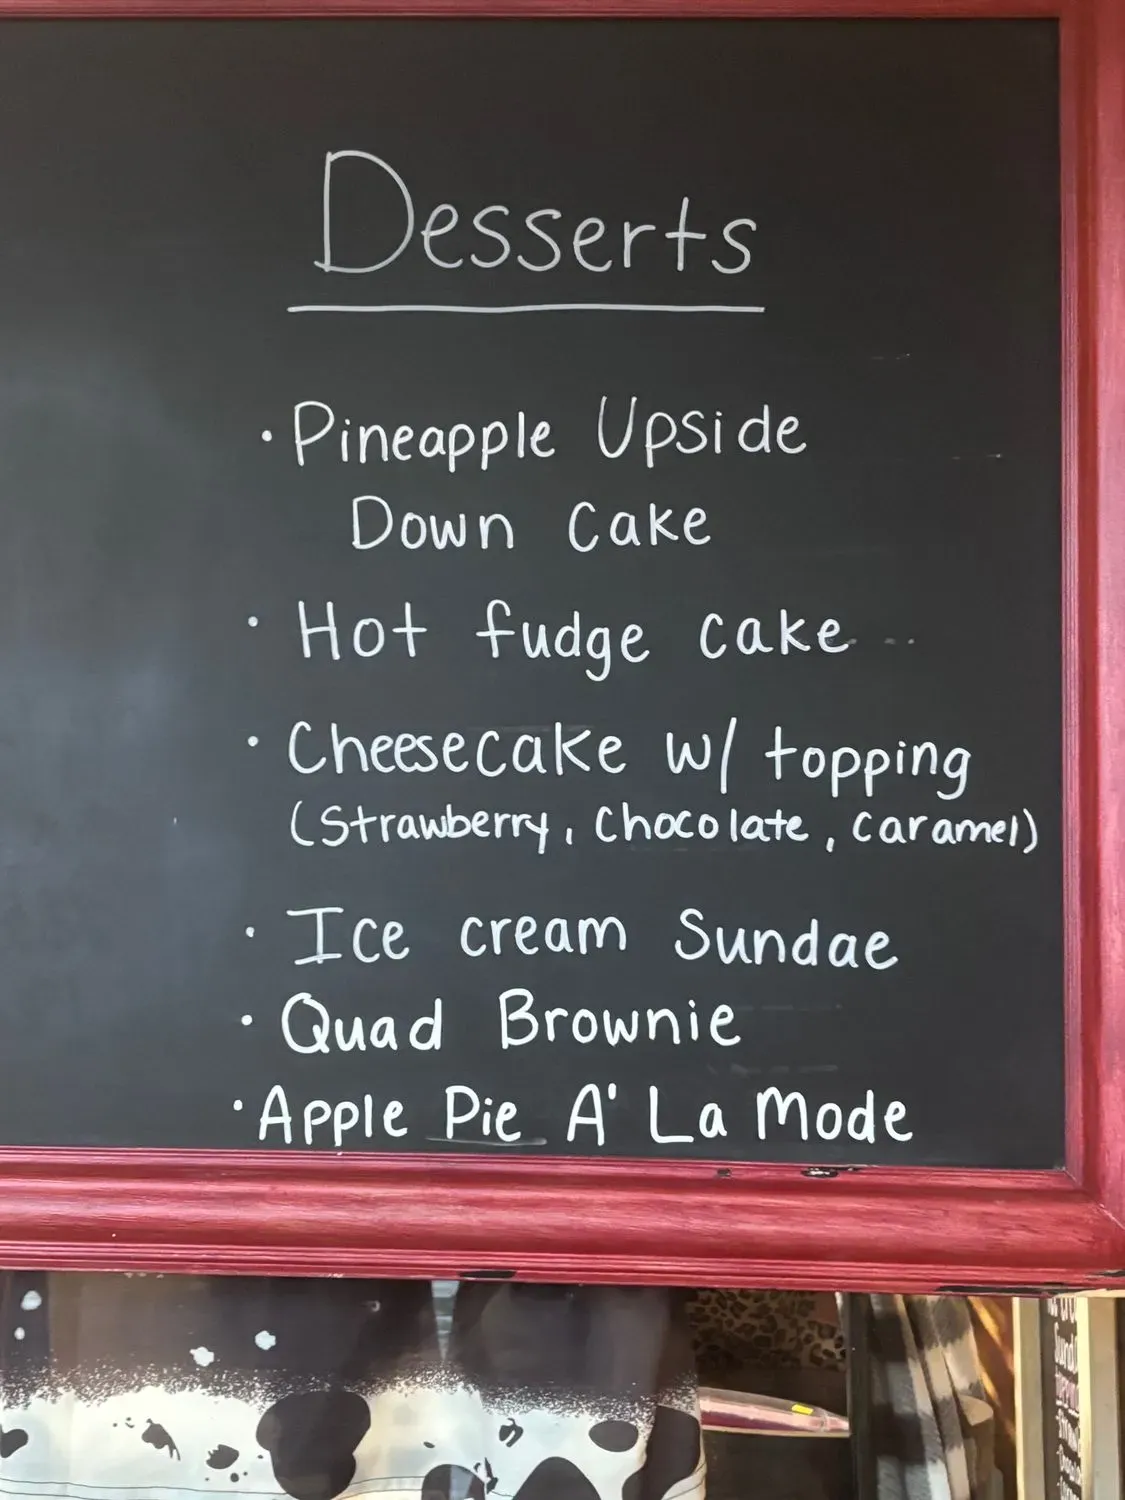 Desserts
• Pineapple Upside
Down Cake
• Hot fudge cake
• Cheesecake w/ topping
(Strawberry, Chocolate, Caramel)
• Ice cream Sundae
• Quad Brownie
• Apple Pie A' La Mode